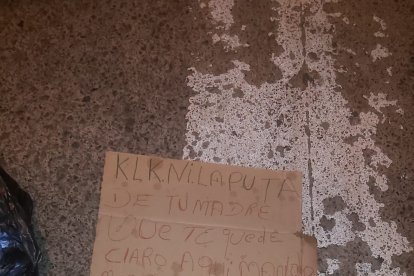 KLK.NI.LAPUTA
DE TU MADRE
QUE TE quede
CLARO AQUI MANDO